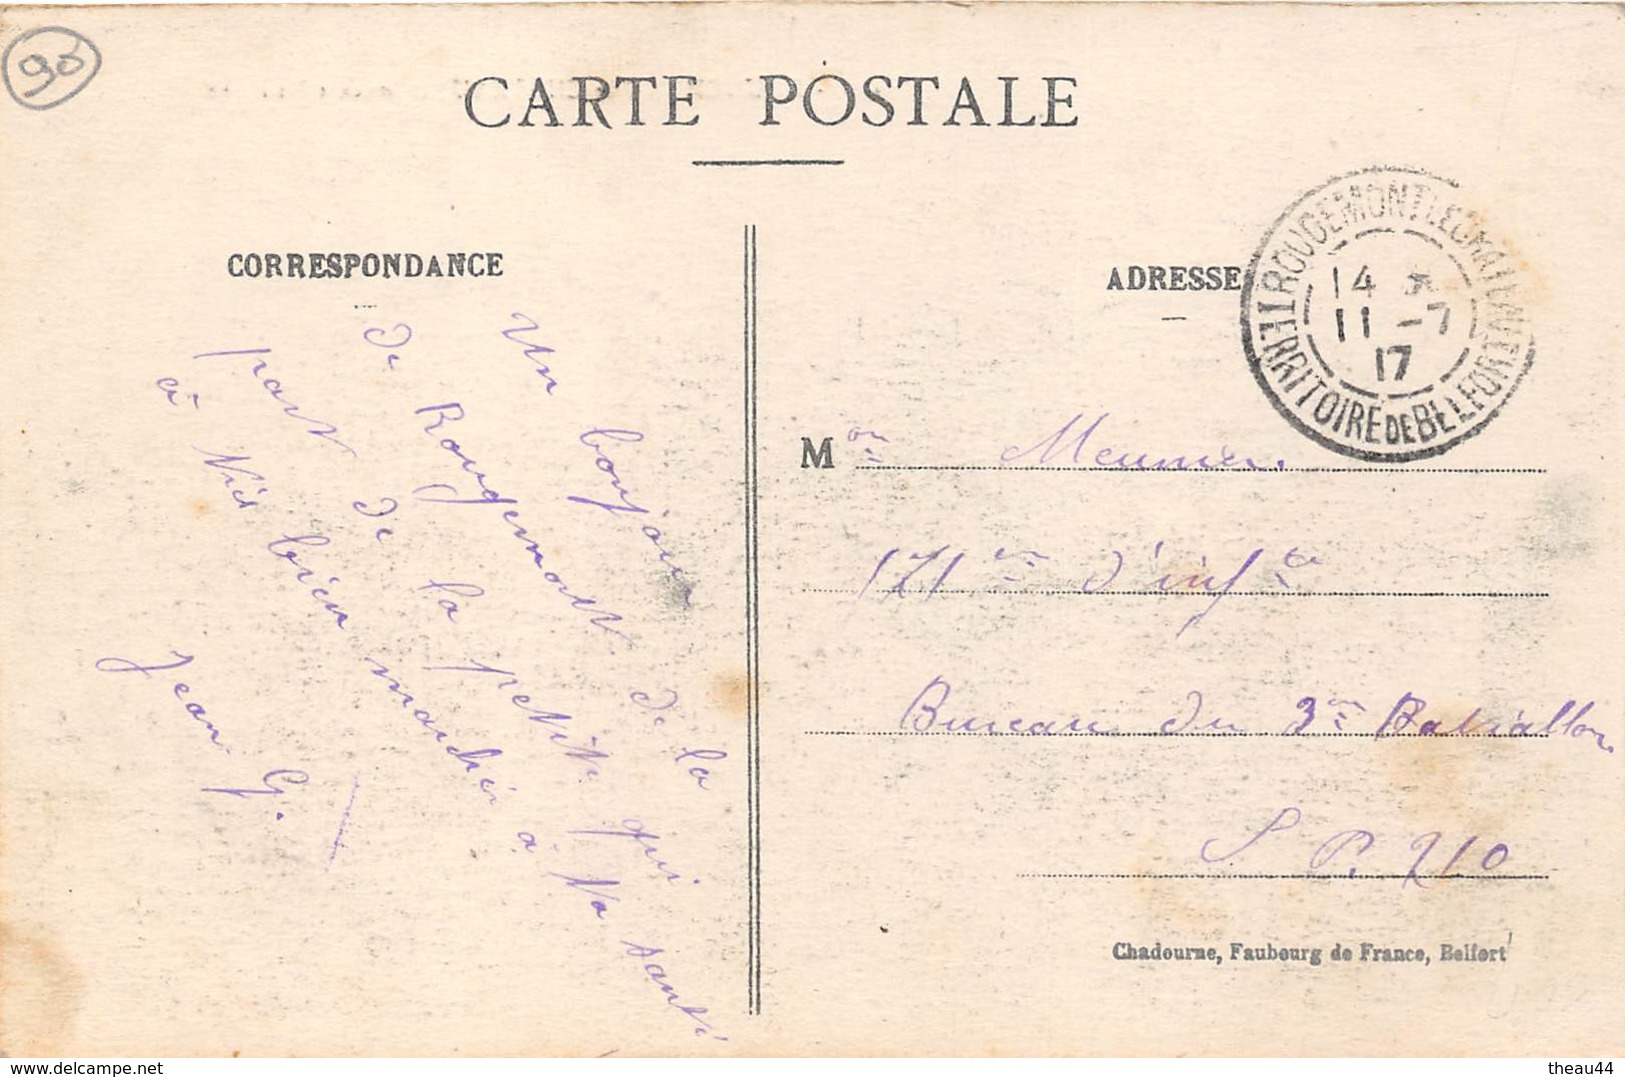 90
CARTE POSTALE
CORRESPONDANCE
ADRESSE
ROUGEMONT LE CHATEAU
14
11 -7
17
TERRITOIRE DE BELFORT
Un bonjour de la
de Rougemont qui
part de la petite à Va santé
à bien marcher
Jean G.
Mon Meunier.
171em d'infie
Bureau du 3me Bataillon
S P. 210
Chadourne, Faubourg de France, Belfort
delcampe.net
theau44